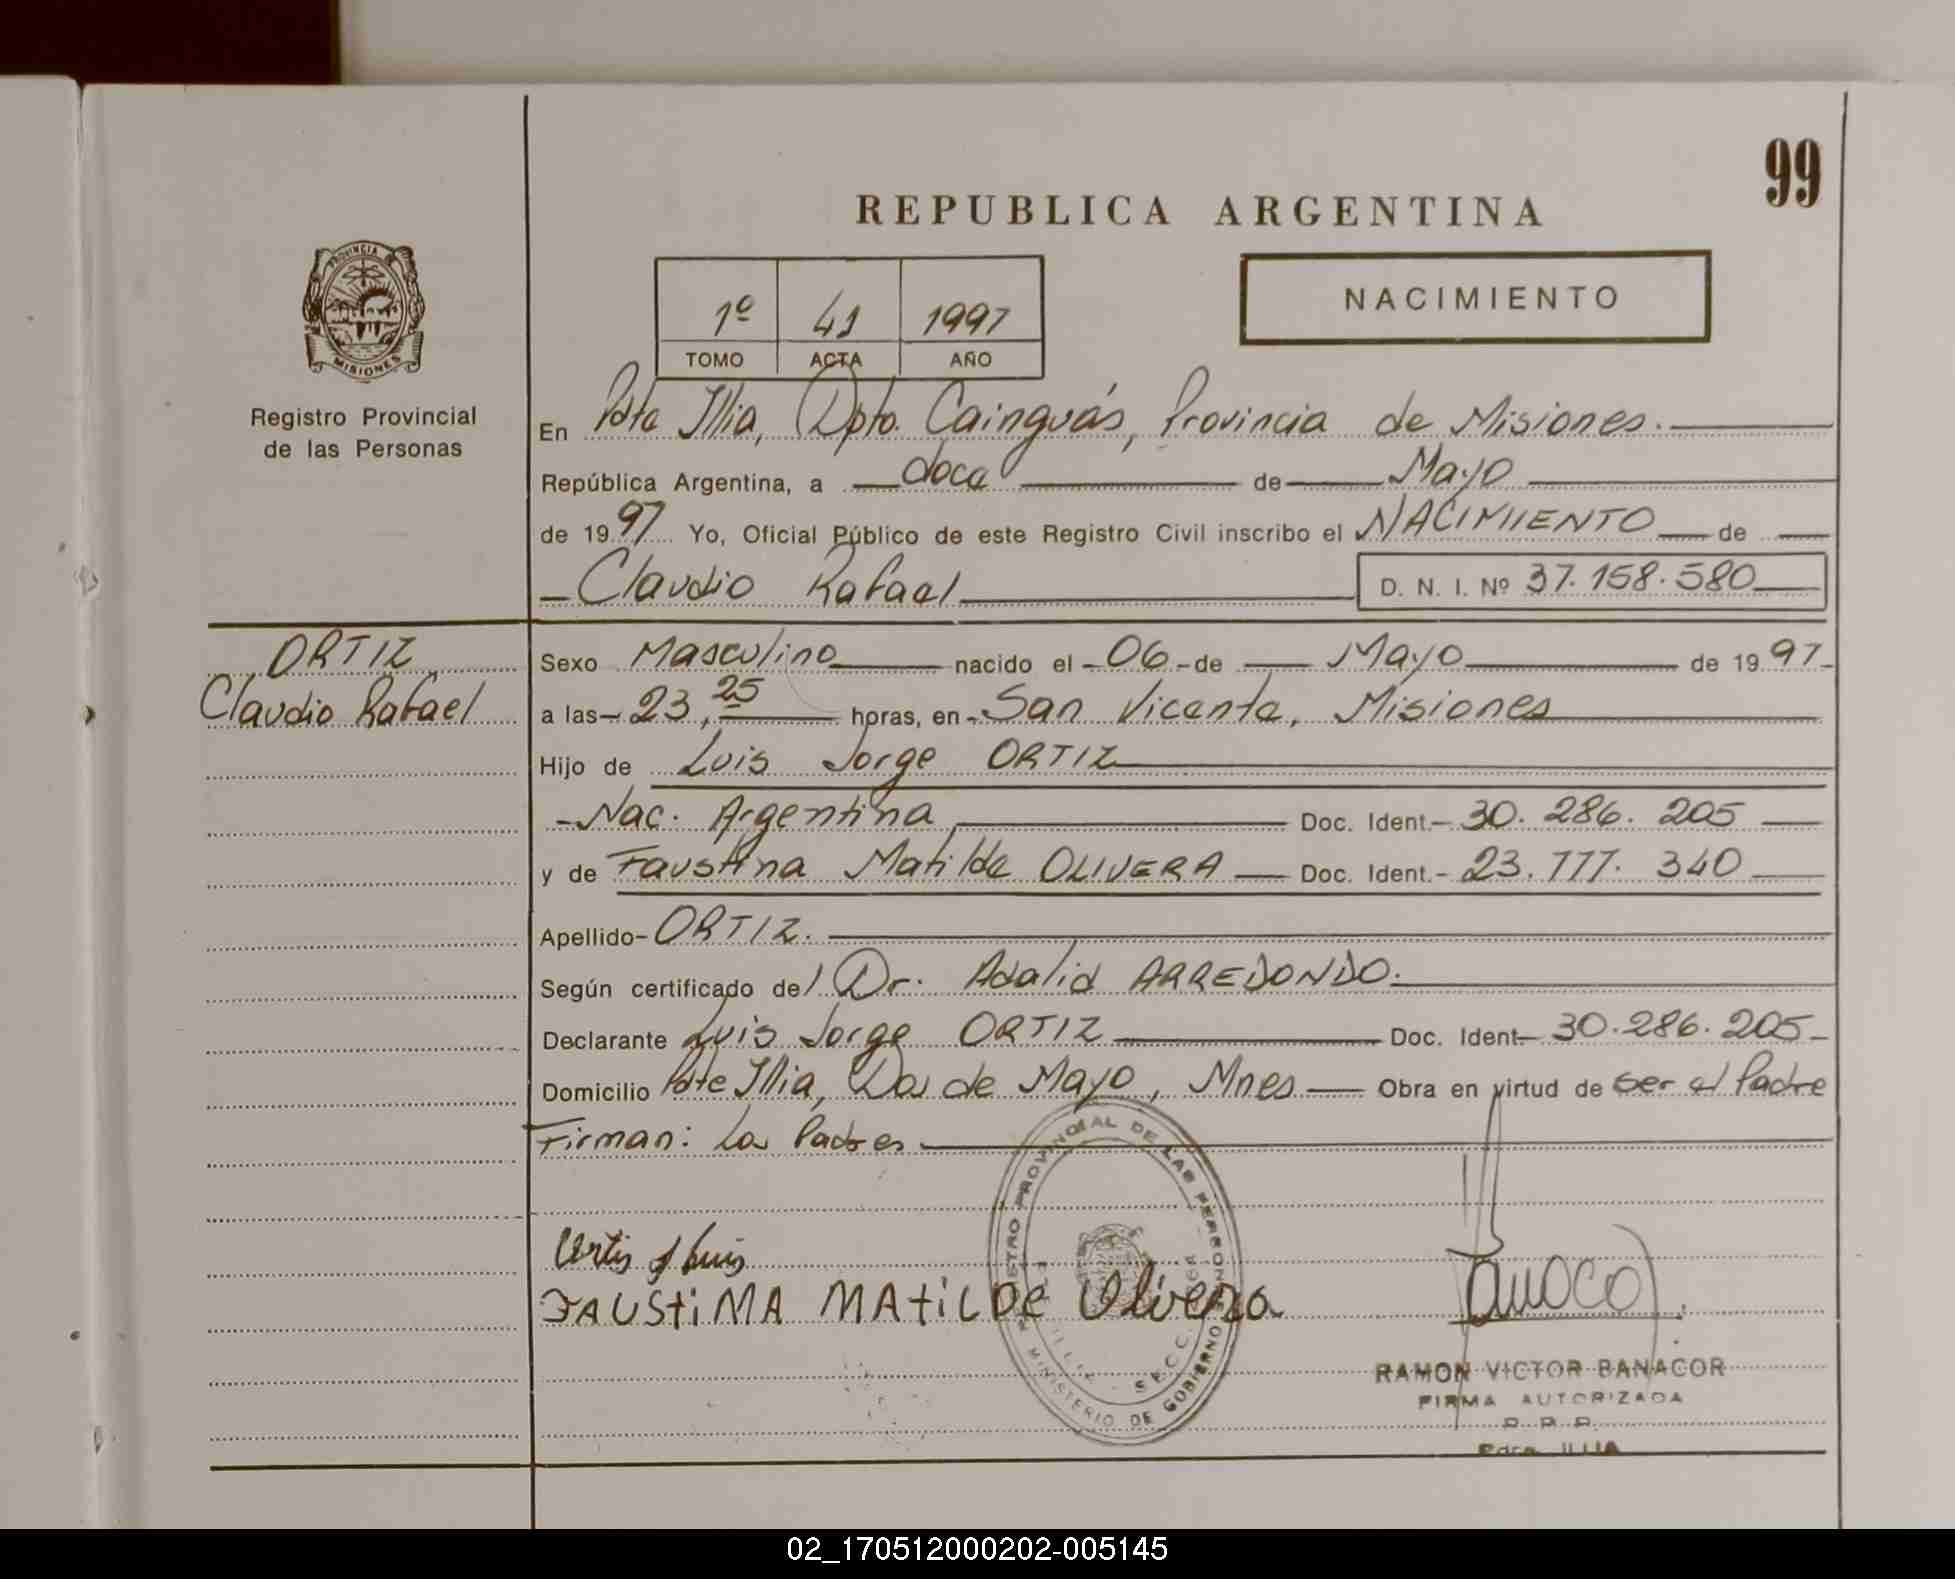 99
REPUBLICA ARGENTINA
PROVINCIA DE
MISIONES
Registro Provincial
de las Personas
NACIMIENTO
1º 41 1997
TOMO ACTA AÑO
En Pdte Illia, Dpto. Cainguás, Provincia de Misiones.
República Argentina, a doce de Mayo
de 1997 Yo, Oficial Público de este Registro Civil inscribo el NACIMIENTO de
Claudio Rafael D. N. I. Nº 37.158.580
ORTIZ
Claudio Rafael
Sexo Masculino nacido el 06 de Mayo de 1997
a las 23,25 horas, en San Vicente, Misiones
Hijo de Luis Jorge ORTIZ
Nac. Argentina Doc. Ident. 30.286.205
y de Faustina Matilde OLIVERA Doc. Ident. 23.777.340
Apellido ORTIZ.
Según certificado del Dr. Adalid ARREDONDO.
Declarante Luis Jorge ORTIZ Doc. Ident 30.286.205
Domicilio Pdte Illia, Dos de Mayo, Mnes Obra en virtud de ser el Padre
Firman: Los Padres
Ortis J Luis
FAUSTiMA MAtiLDe Olivera
REGISTRO PROVINCIAL DE LAS PERSONAS
MINISTERIO DE GOBIERNO
RAMON VICTOR BANACOR
FIRMA AUTORIZADA
R. P. P.
Pdte. ILLIA
02_170512000202-005145